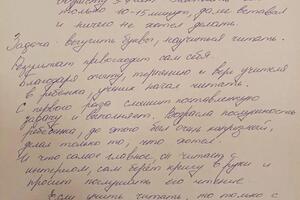 только 10-15 минут, далее вставал
и ничего не хотел делать.
Задача: выучить буквы, научиться читать.
Результат превосходит сам себя.
Благодаря опыту, терпению и вере учителя
в ребёнка, ученик начал читать.
С первого раза слышит поставленную
задачу и выполняет. Возросла послушность
ребёнка, до этого был очень капризный,
делал только то, что хотел.
И что самое главное, он читает с
интересом, сам берёт книгу в руки и
просит послушать его чтение
Если учить читать, то только с